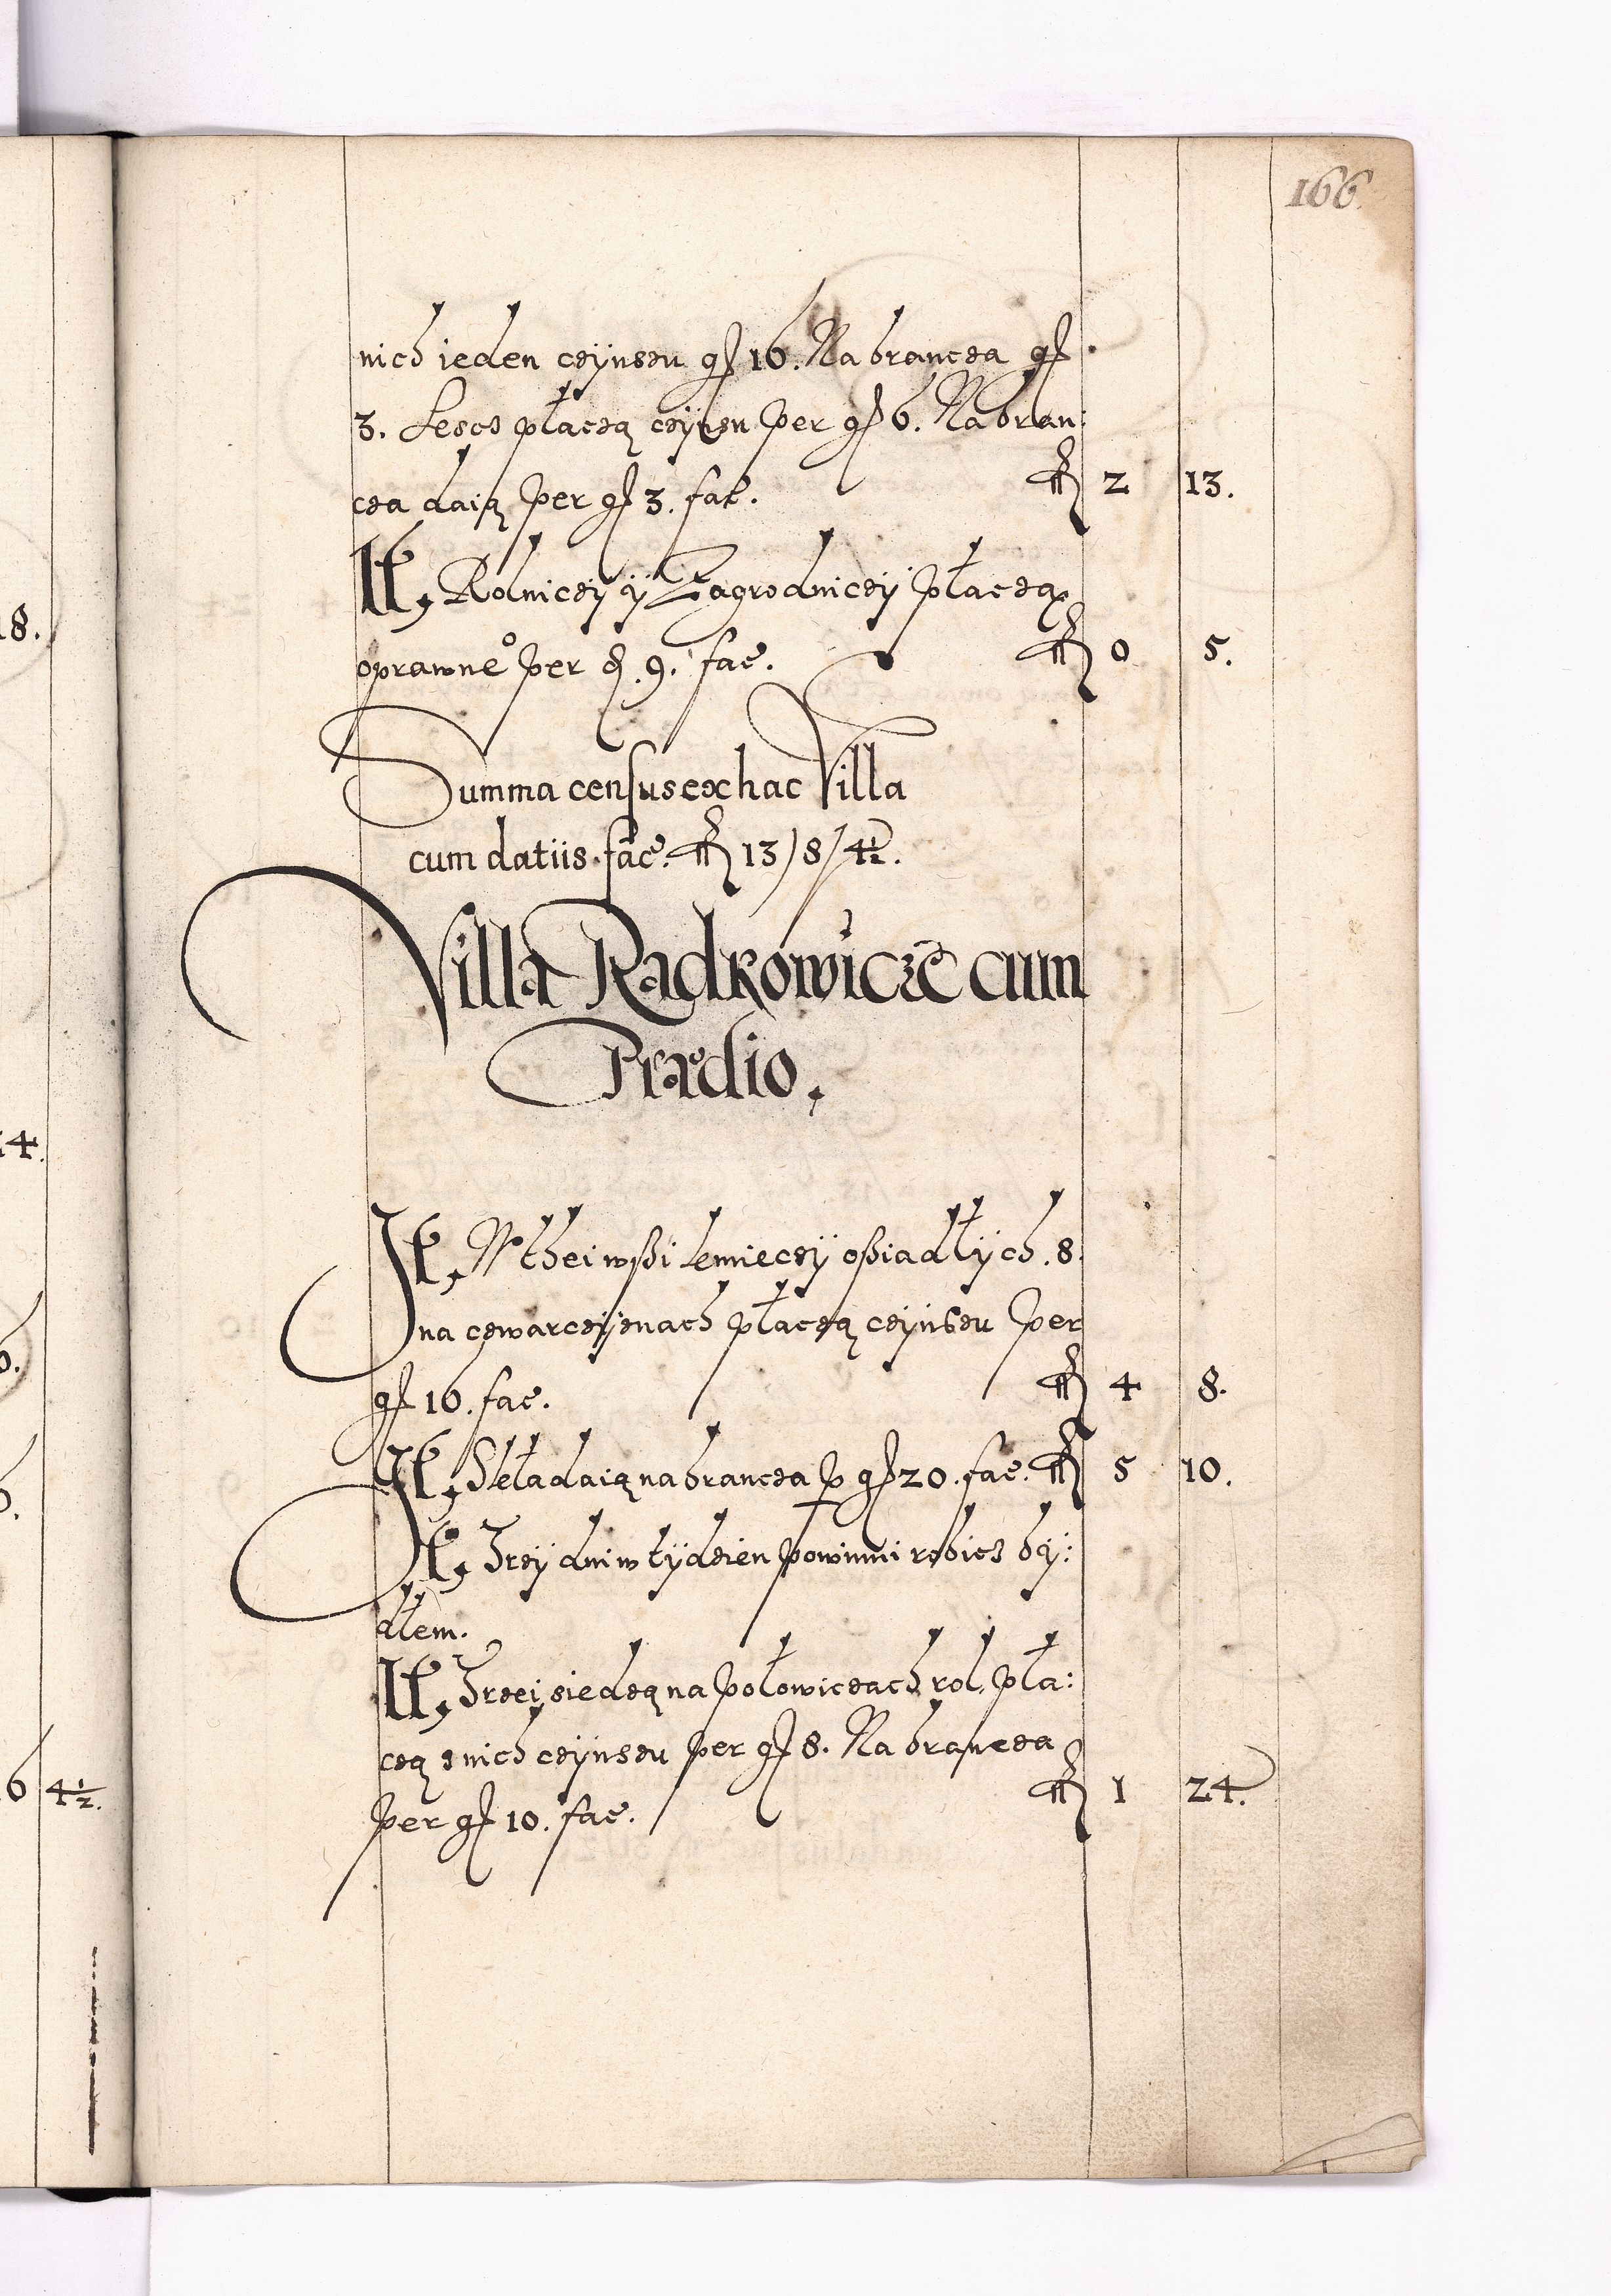 166
nich ieden czÿnszu gſ 16. Na brancza gſ
3. Szesc płaczą czÿnszu per gſ 6. Na bran:
cza daią per gſ 3. fac. fl 2 13.
It, Rolniczÿ ÿ Zagrodniczÿ płaczą
oprawne° per ₰. 9. fac. fl 0 5.
Summa census ex hac Villa
cum datiis. fac. fl 13/8/4½.
Villa Radkowicze cum
Prædio.
It, W thei wßi kmieczÿ oßiadłÿch. 8.
na czwarczÿznach płaczą czÿnszu per
gſ 16. fac. fl 4 8.
It, daią na brancza p gſ 20. fac. fl 5 10.
It, Trzÿ dni w tÿdzien powinni robicz bÿ:
dłem.
It, Trzei siedzą na połowiczach rol, pła:
czą z nich czÿnszu per gſ 8. Na brancza
per gſ 10. fac. fl 1 24.
18.
14.
6.
6.
6 4½.